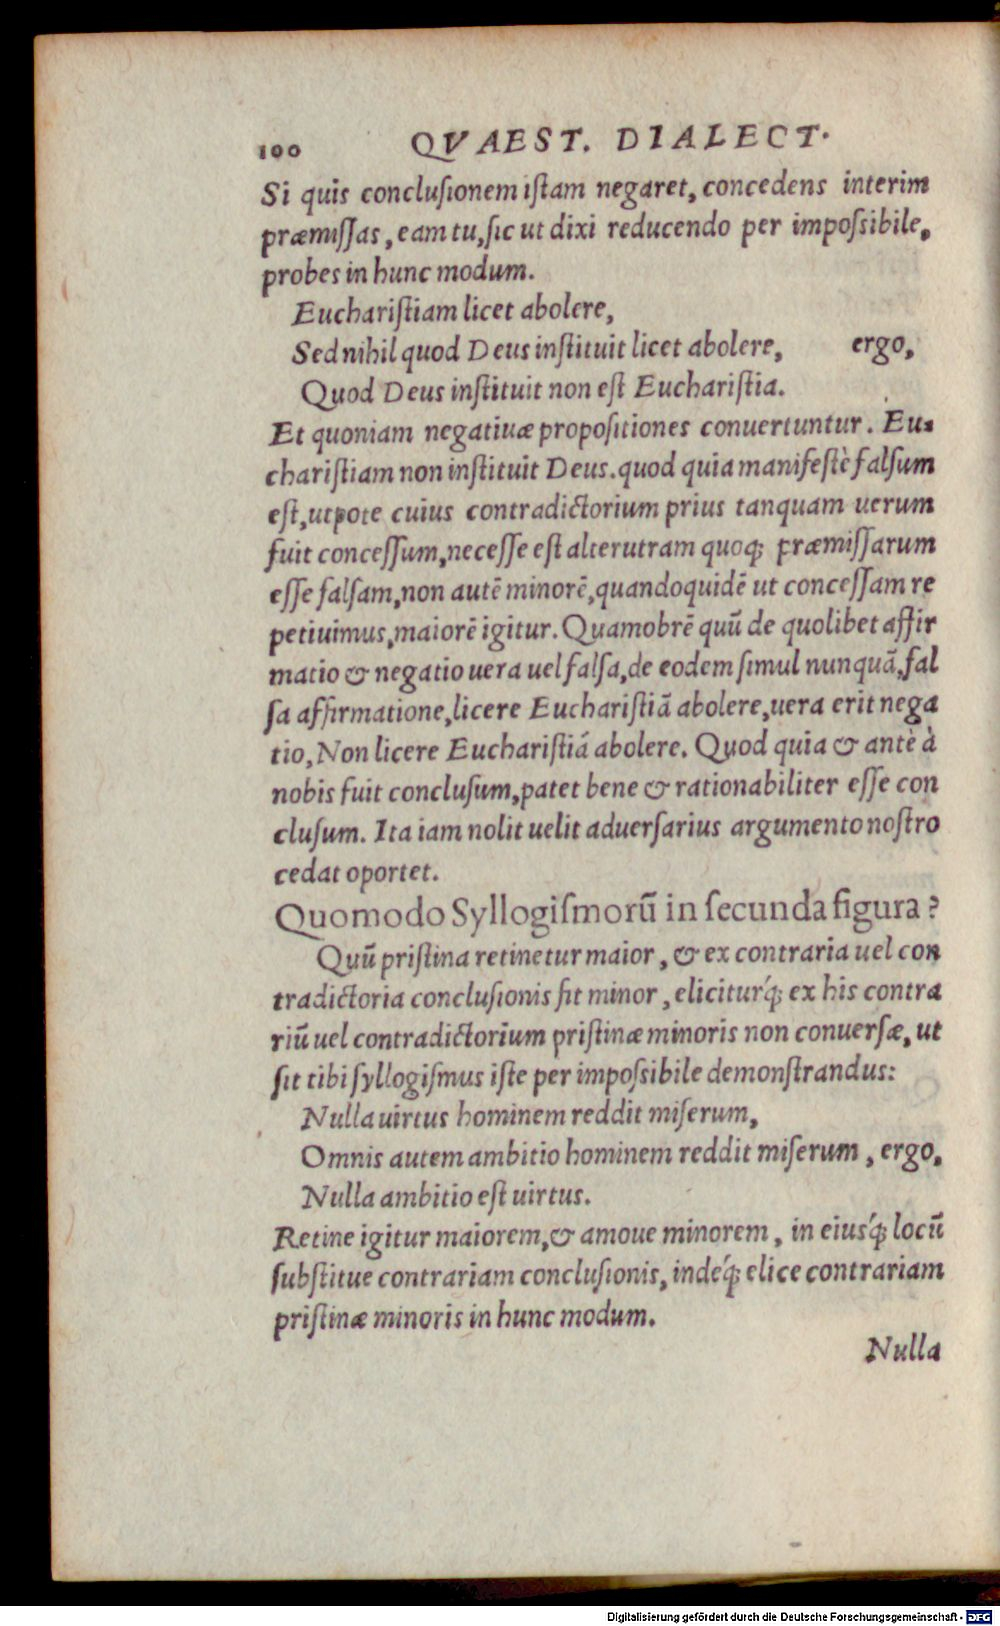 100 QVAEST. DIALECT.
Si quis conclusionem istam negaret, concedens interim
præmissas, eam tu, sic ut dixi reducendo per impossibile,
probes in hunc modum.
Eucharistiam licet abolere,
Sed nihil quod Deus instituit licet abolere, ergo,
Quod Deus instituit non est Eucharistia.
Et quoniam negatiuæ propositiones conuertuntur. Eu-
charistiam non instituit Deus. quod quia manifestè falsum
est, utpote cuius contradictorium prius tanquam uerum
fuit concessum, necesse est alterutram quoq; præmissarum
esse falsam, non autē minorē, quandoquidē ut concessam re
petiuimus, maiorē igitur. Quamobrē quū de quolibet affir
matio & negatio uera uel falsa, de eodem simul nunquā, fal
sa affirmatione, licere Eucharistiā abolere, uera erit nega
tio, Non licere Eucharistiā abolere. Quod quia & antè à
nobis fuit conclusum, patet bene & rationabiliter esse con
clusum. Ita iam nolit uelit aduersarius argumento nostro
cedat oportet.
Quomodo Syllogismorū in secunda figura?
Quū pristina retinetur maior, & ex contraria uel con
tradictoria conclusionis fit minor, eliciturq́; ex his contra
riū uel contradictorium pristinæ minoris non conuersæ, ut
sit tibi syllogismus iste per impossibile demonstrandus:
Nulla uirtus hominem reddit miserum,
Omnis autem ambitio hominem reddit miserum, ergo,
Nulla ambitio est uirtus.
Retine igitur maiorem, & amoue minorem, in eiusq́; locū
substitue contrariam conclusionis, indeq́; elice contrariam
pristinæ minoris in hunc modum.
Nulla
Digitalisierung gefördert durch die Deutsche Forschungsgemeinschaft - DFG